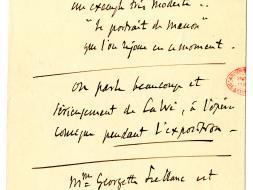 un exemple très modeste..
"le portrait de Manon"
que l'on rejoue en ce moment.
On parle beaucoup et
sérieusement de Calvé, à l'opéra
comique pendant l'exposition -
Mme Georgette Leblanc est